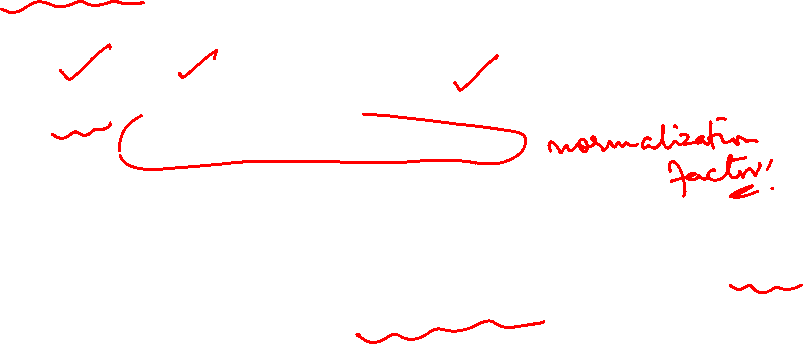 normalization
factor!